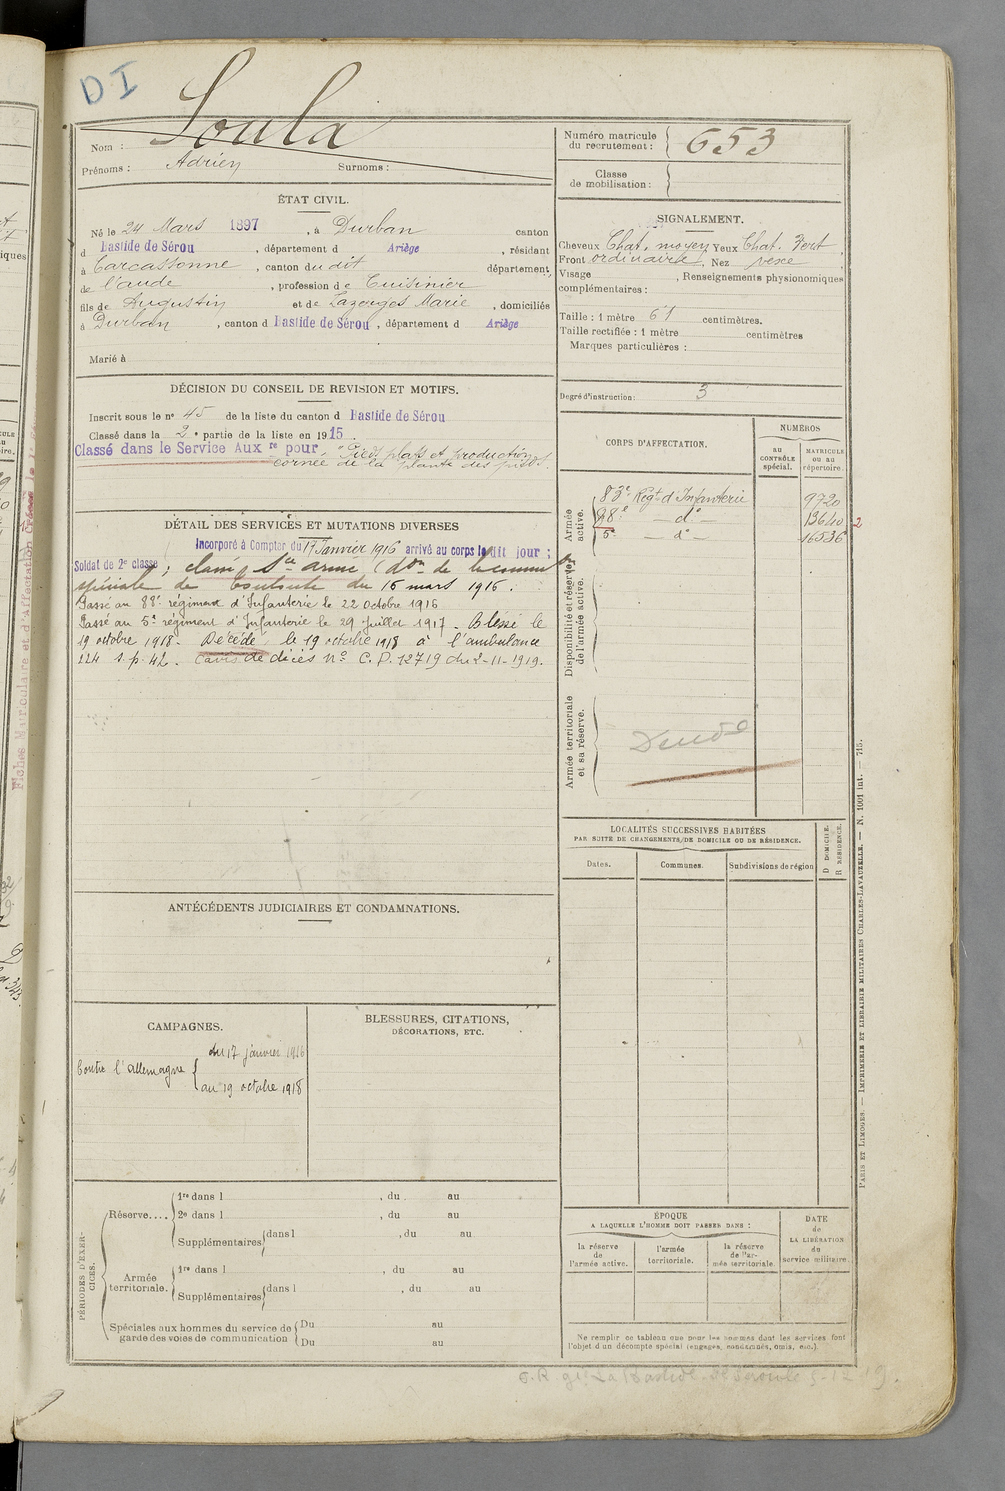 DI
Soula
Nom :
Prénoms : Adrien Surnoms :
Numéro matricule
du recrutement : 653
Classe
de mobilisation :
ÉTAT CIVIL.
Né le 24 Mars 1897, à Durban canton
d Bastide de Sérou, département d Ariège, résidant
à Carcassonne, canton du dit département
de l'aude, profession de Cuisinier
fils de Augustin et de Lazerges Marie, domiciliés
à Durban, canton d Bastide de Sérou, département d Ariège
Marié à
SIGNALEMENT.
Cheveux Chat. moyen Yeux Chat. Vert
Front ordinaire, Nez vexe
Visage , Renseignements physionomiques
complémentaires :
Taille : 1 mètre 61 centimètres.
Taille rectifiée : 1 mètre centimètres
Marques particulières :
Degré d'instruction : 3
DÉCISION DU CONSEIL DE REVISION ET MOTIFS.
Inscrit sous le n° 45 de la liste du canton d Bastide de Sérou
Classé dans la 2e partie de la liste en 1915
Classé dans le Service Auxre pour Pieds plats et production
cornée de la plante des pieds.
DÉTAIL DES SERVICES ET MUTATIONS DIVERSES
Incorporé à Compter du 17 Janvier 1916 arrivé au corps le dit jour ;
Soldat de 2e classe ; classé Sce armé (don de la comm on
spéciale de Toulouse du 16 mars 1916.
Passé au 88e régiment d'Infanterie le 22 octobre 1916
Passé au 5e régiment d'Infanterie le 29 juillet 1917. Blessé le
19 octobre 1918. Décédé le 19 octobre 1918 à l'ambulance
224 s.p. 42. avis de décès N° C.P. 12719 du 2-11-1919.
CORPS D'AFFECTATION.
NUMÉROS
AU
CONTRÔLE
spécial.
MATRICULE
ou au
répertoire.
Armée
active.
83e Regt d'Infanterie 9720
88e — d° — 13640 2
5e — d° — 16536
Disponibilité et réserve
de l'armée active.
Armée territoriale
et sa réserve.
Décédé
LOCALITÉS SUCCESSIVES HABITÉES
PAR SUITE DE CHANGEMENTS DE DOMICILE OU DE RÉSIDENCE.
Dates. Communes. Subdivisions de région
D DOMICILE.
R RÉSIDENCE.
ANTÉCÉDENTS JUDICIAIRES ET CONDAMNATIONS.
CAMPAGNES.
Contre l'allemagne
du 17 janvier 1916
au 19 octobre 1918
BLESSURES, CITATIONS,
DÉCORATIONS, ETC.
PÉRIODES D'EXER-
CICES.
Réserve....
1re dans l , du au
2e dans l , du au
Supplémentaires dans l , du au
Armée
territoriale.
1re dans l , du au
Supplémentaires dans l , du au
Spéciales aux hommes du service de
garde des voies de communication
Du au
Du au
ÉPOQUE
A LAQUELLE L'HOMME DOIT PASSER DANS :
la réserve
de
l'armée active.
l'armée
territoriale.
la réserve
de l'ar-
mée territoriale.
DATE
de
LA LIBÉRATION
du
service militaire.
Ne remplir ce tableau que pour les hommes dont les services font
l'objet d'un décompte spécial (engagés, condamnés, omis, etc.)
PARIS ET LIMOGES. — IMPRIMERIE ET LIBRAIRIE MILITAIRES CHARLES-LAVAUZELLE. — N. 1001 int. — 715.
Fiches Matriculaire et d'Affectation